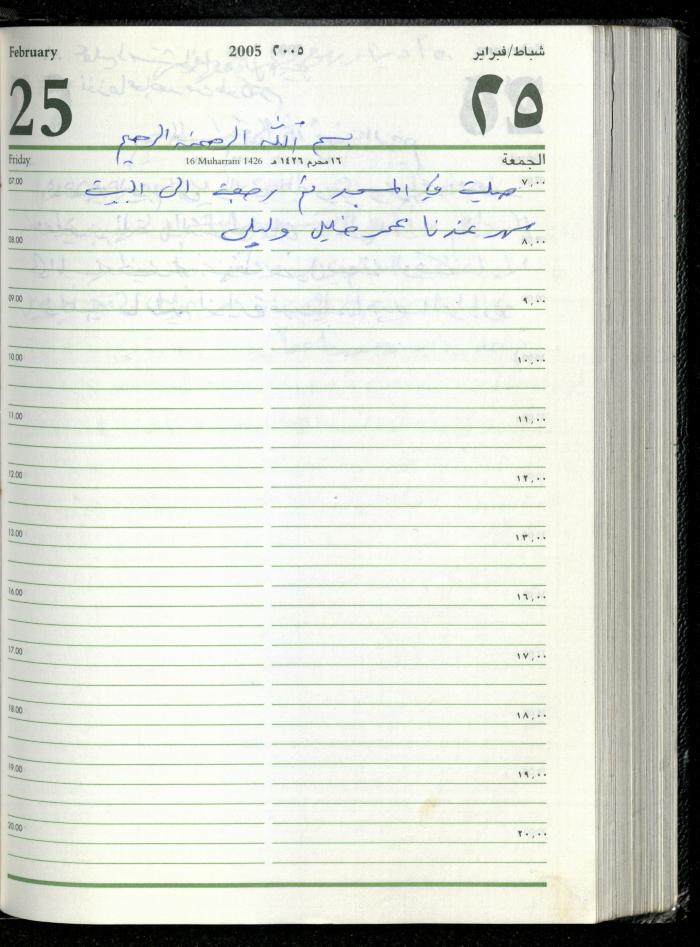 February 2005 ٢٠٠٥ شباط/فبراير
25 ٢٥
بسم الله الرحمن الرحيم
Friday 16 Muharram 1426 ١٦ محرم ١٤٢٦ هـ الجمعة
07.00 صليت في المسجد ثم رجعت الى البيت ٧,٠٠
سهر عندنا عمر خليل وليلى
08.00 ٨,٠٠
09.00 ٩,٠٠
10.00 ١٠,٠٠
11.00 ١١,٠٠
12.00 ١٢,٠٠
13.00 ١٣,٠٠
16.00 ١٦,٠٠
17.00 ١٧,٠٠
18.00 ١٨,٠٠
19.00 ١٩,٠٠
20.00 ٢٠,٠٠